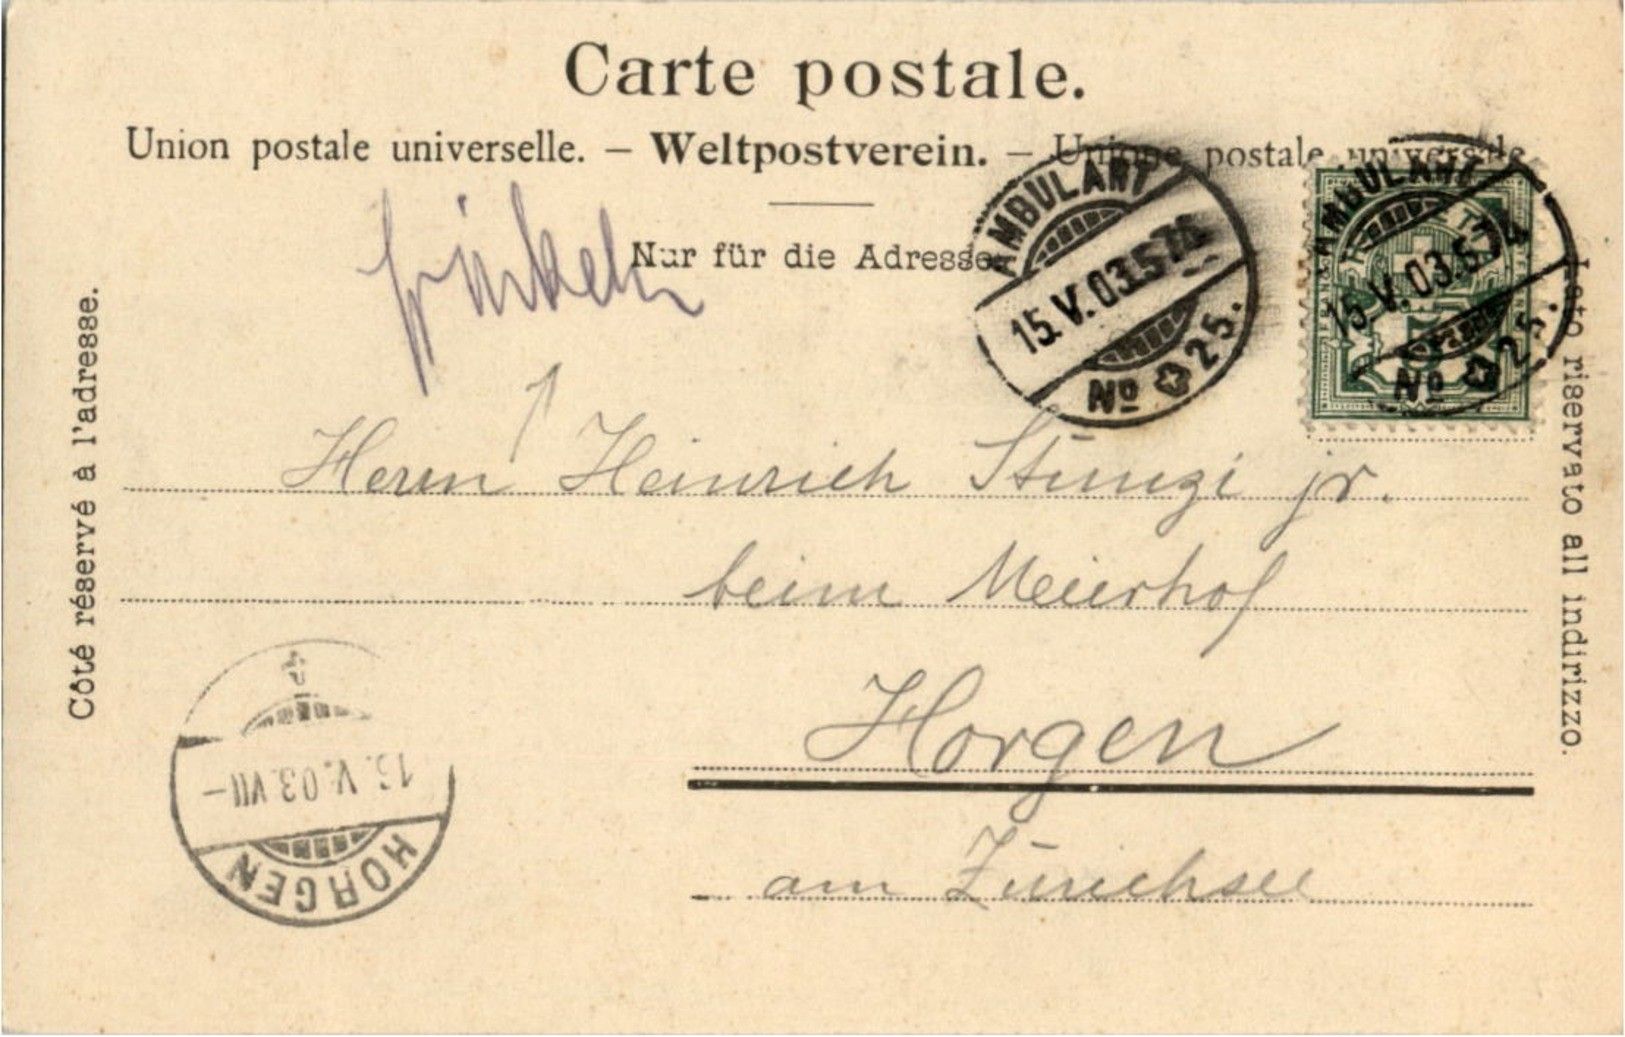 Carte postale.
Union postale universelle. — Weltpostverein. — Unione postale universale
Nur für die Adresse
Côté réservé à l'adresse.
Lato riservato all indirizzo.
AMBULANT
15.V.03.
No 25.
AMBULANT
15.V.03.
No 25.
Herrn Heinrich Stünzi jr.
beim Meierhof
Horgen
am Zürichsee
V.03.VII–
HORGEN